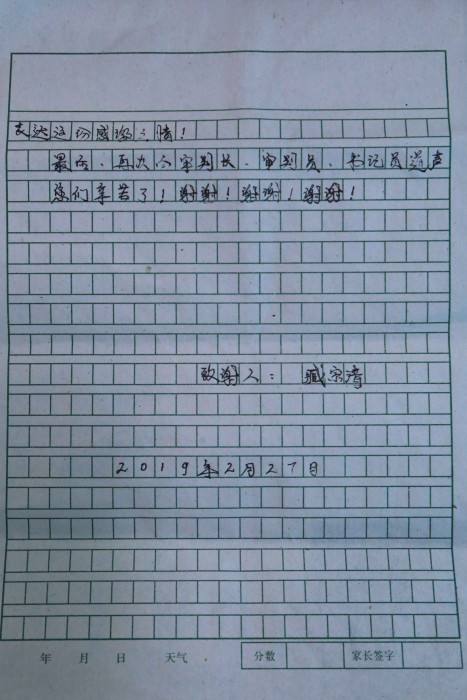 表达这份感激之情！
最后，再次向审判长、审判员、书记员道声
您们辛苦了！谢谢！谢谢！谢谢！
致谢人：臧宗清
2019年2月27日
年 月 日 天气 分数 家长签字